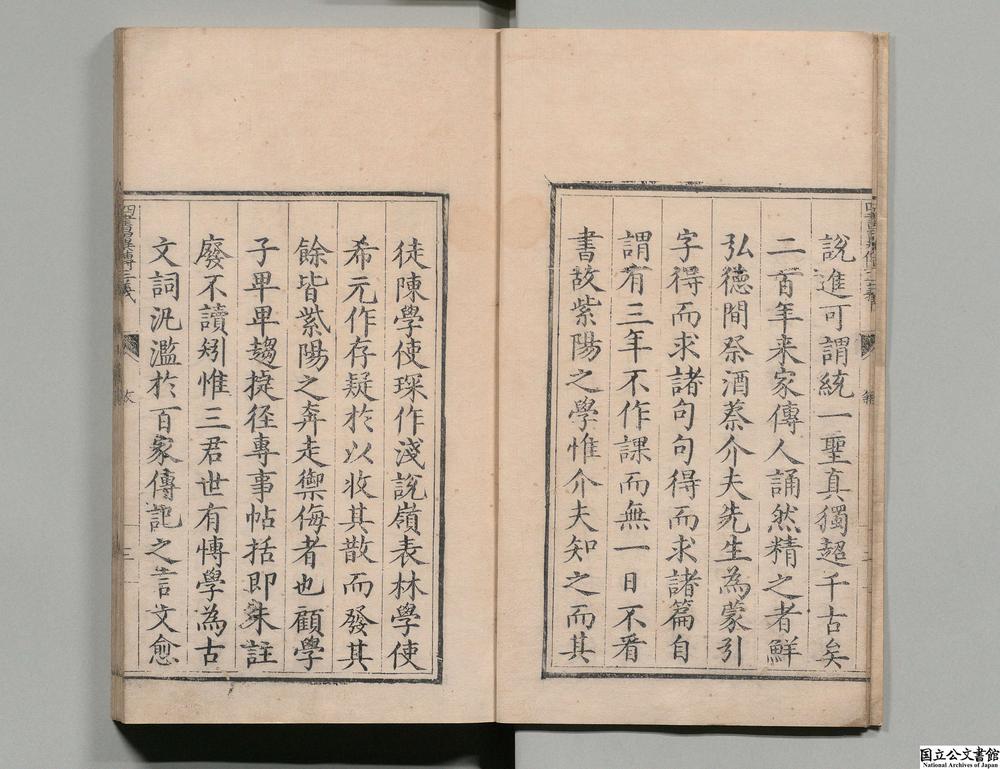 說進可謂統一聖真獨超千古矣
二百年来家傳人誦然精之者鮮
弘德間祭酒蔡介夫先生為蒙引
字得而求諸句句得而求諸篇自
謂有三年不作課而無一日不看
書故紫陽之學惟介夫知之而其
徒陳學使琛作淺說嶺表林學使
希元作存疑於以收其散而發其
餘皆紫陽之奔走禦侮者也顧學
子畢畢趨捷径專事帖括即朱註
廢不讀矧惟三君世有慱學為古
文詞汎濫於百家傳記之言文愈
三
国立公文書館
National Archives of Japan